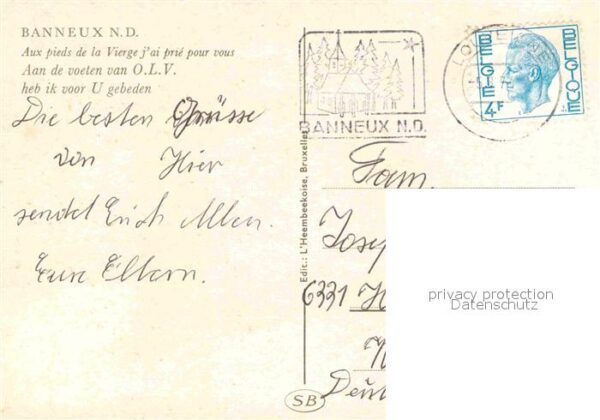 BANNEUX N.D.
Aux pieds de la Vierge j'ai prié pour vous
Aan de voeten van O.L.V.
heb ik voor U gebeden
Die besten Grüsse
von Hier
sendet Euch Allen.
Eure Eltern.
BANNEUX N.D.
BELGIE 4F BELGIQUE
Edit.: L'Heembeekoise, Bruxelles
Fam.
Josep
6331 H
Deut
SB
privacy protection
Datenschutz